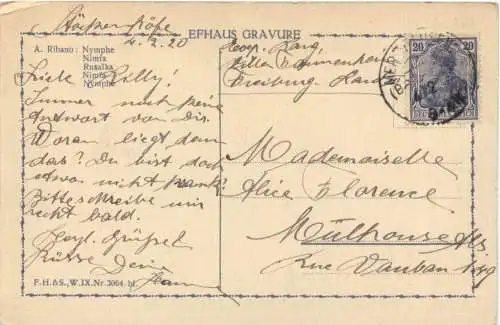 EFHAUS GRAVURE
4.2.20
A. Ribano: Nymphe
Nimfa
Rusalka
Nimfa
Nymphe
Liebe Lilly!
Immer noch keine
Antwort von Dir.
Woran liegt denn
das? Du bist doch
etwas nicht krank?
Bitte schreibe mir
recht bald.
Herzl. Grüße &
Küsse Dein
F.H.&S.,W.IX.Nr.3064.bl.
Freiburg
20 20
Mademoiselle
Alice Florence
Mulhouse Als
Rue Vauban